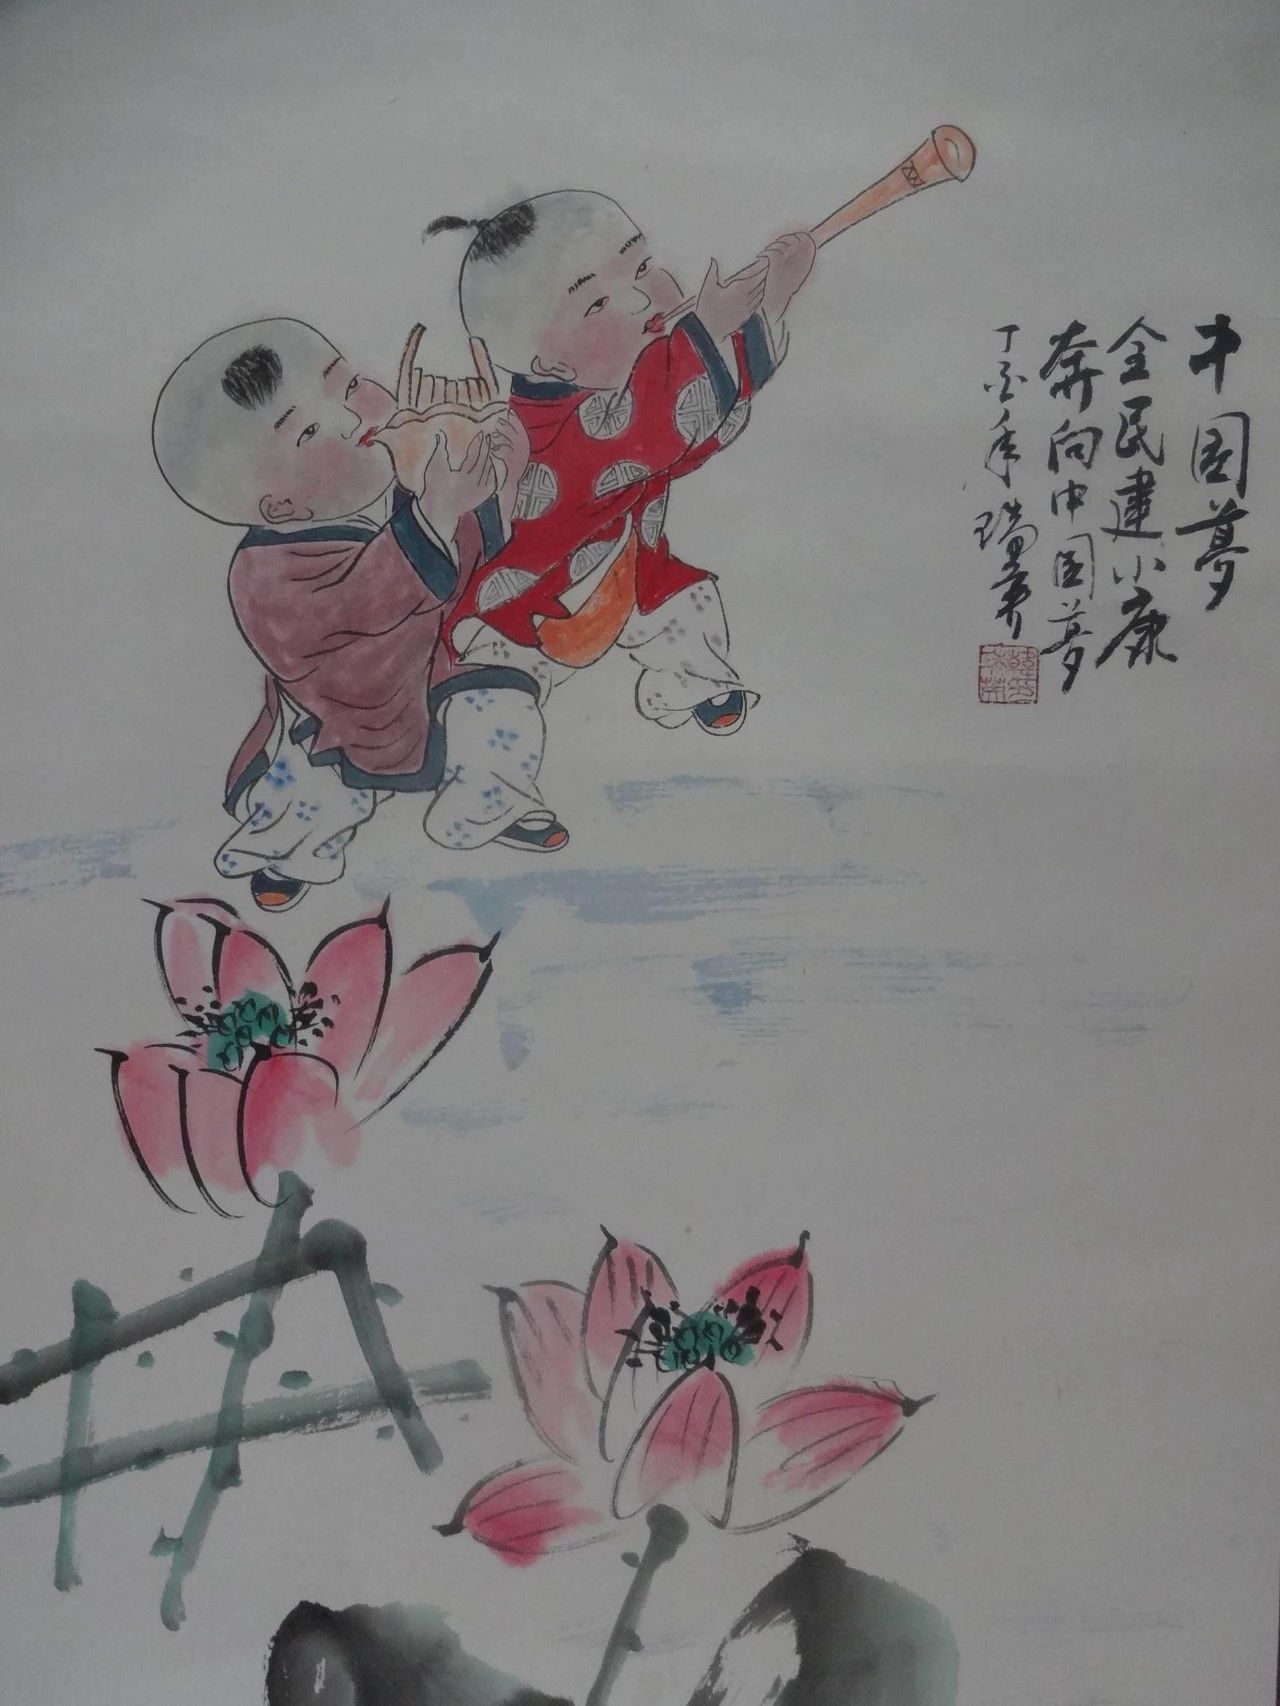 中国梦
全民建小康
奔向中国梦
丁酉年